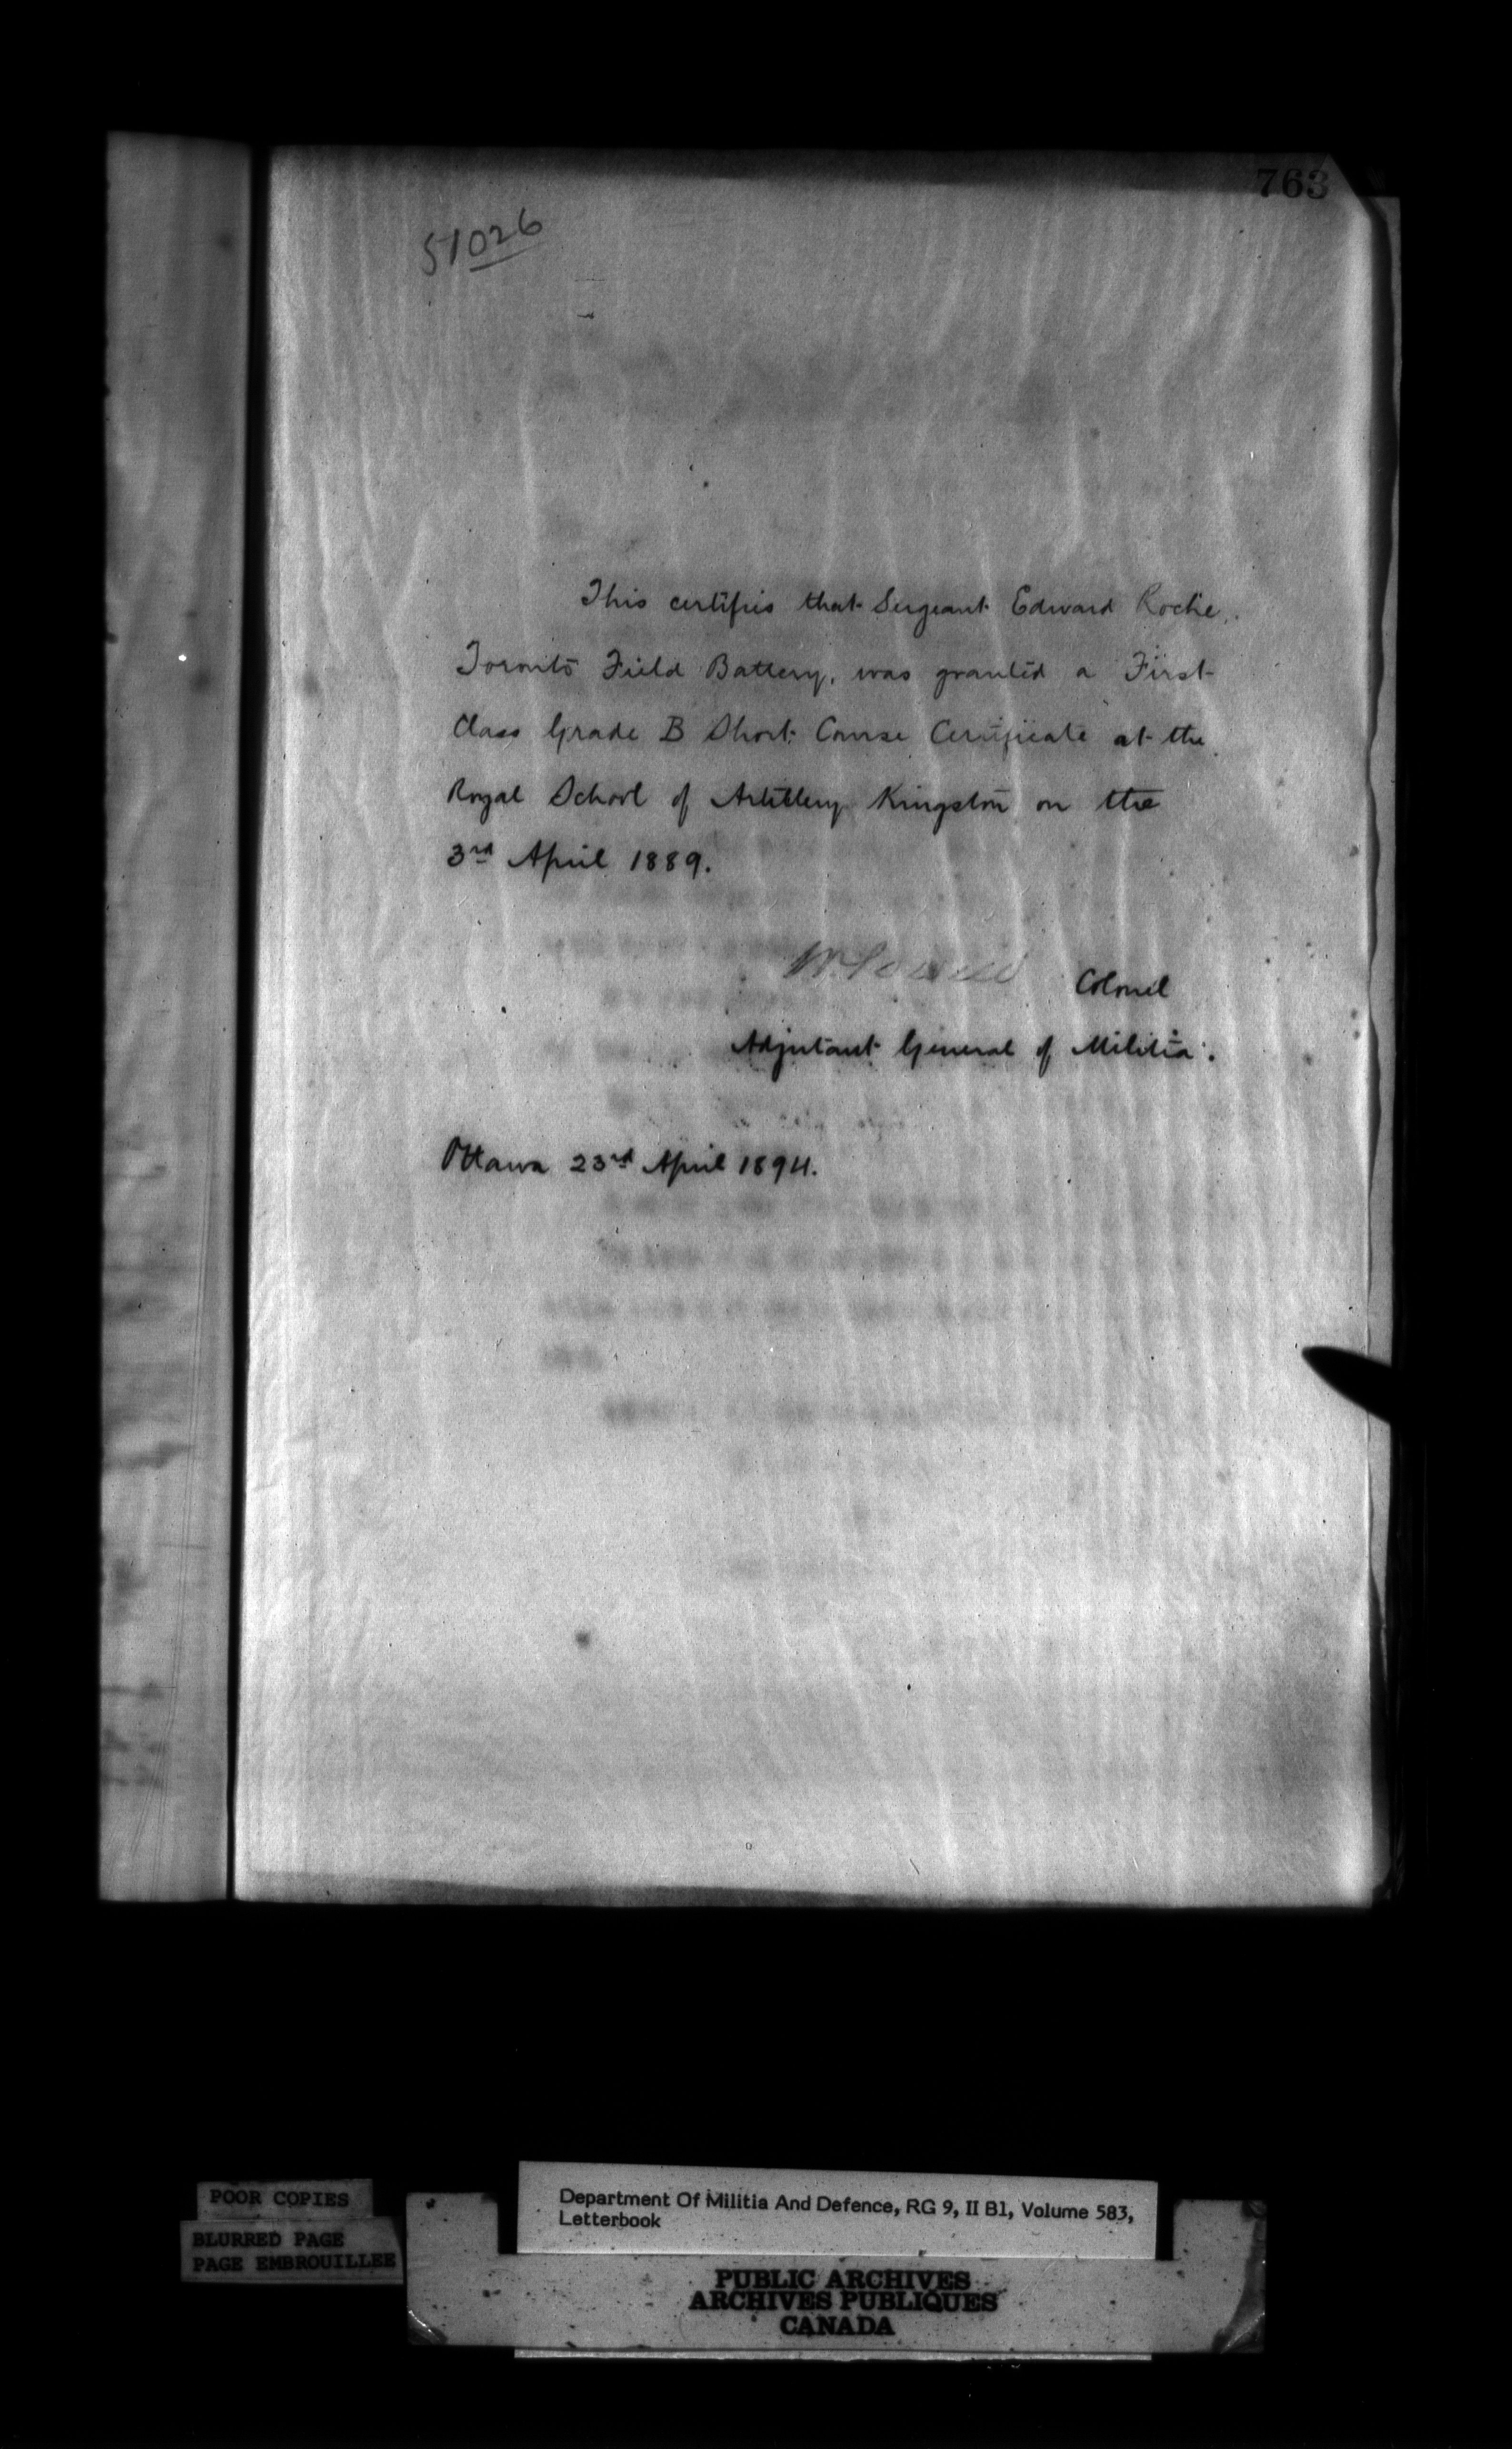 763
51026
This certifies that Sergeant Edward Roche,
Toronto Field Battery, was granted a First
Class Grade B Short Course Certificate at the
Royal School of Artillery Kingston on the
3rd April 1889.
W Powell Colonel
Adjutant General of Militia.
Ottawa 23rd April 1894.
POOR COPIES
BLURRED PAGE
PAGE EMBROUILLEE
Department Of Militia And Defence, RG 9, II B1, Volume 583,
Letterbook
PUBLIC ARCHIVES
ARCHIVES PUBLIQUES
CANADA